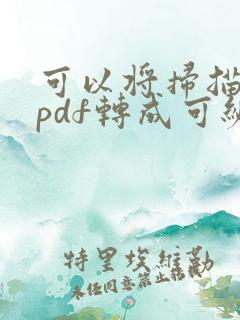 可以将掃描
pdf轉成可編
特里埃維勒
未經同意禁止轉載